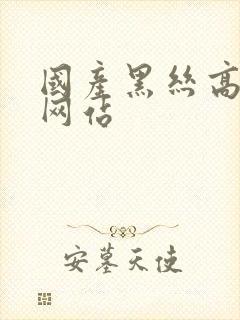 國產黑絲高
网佔
安墓天使